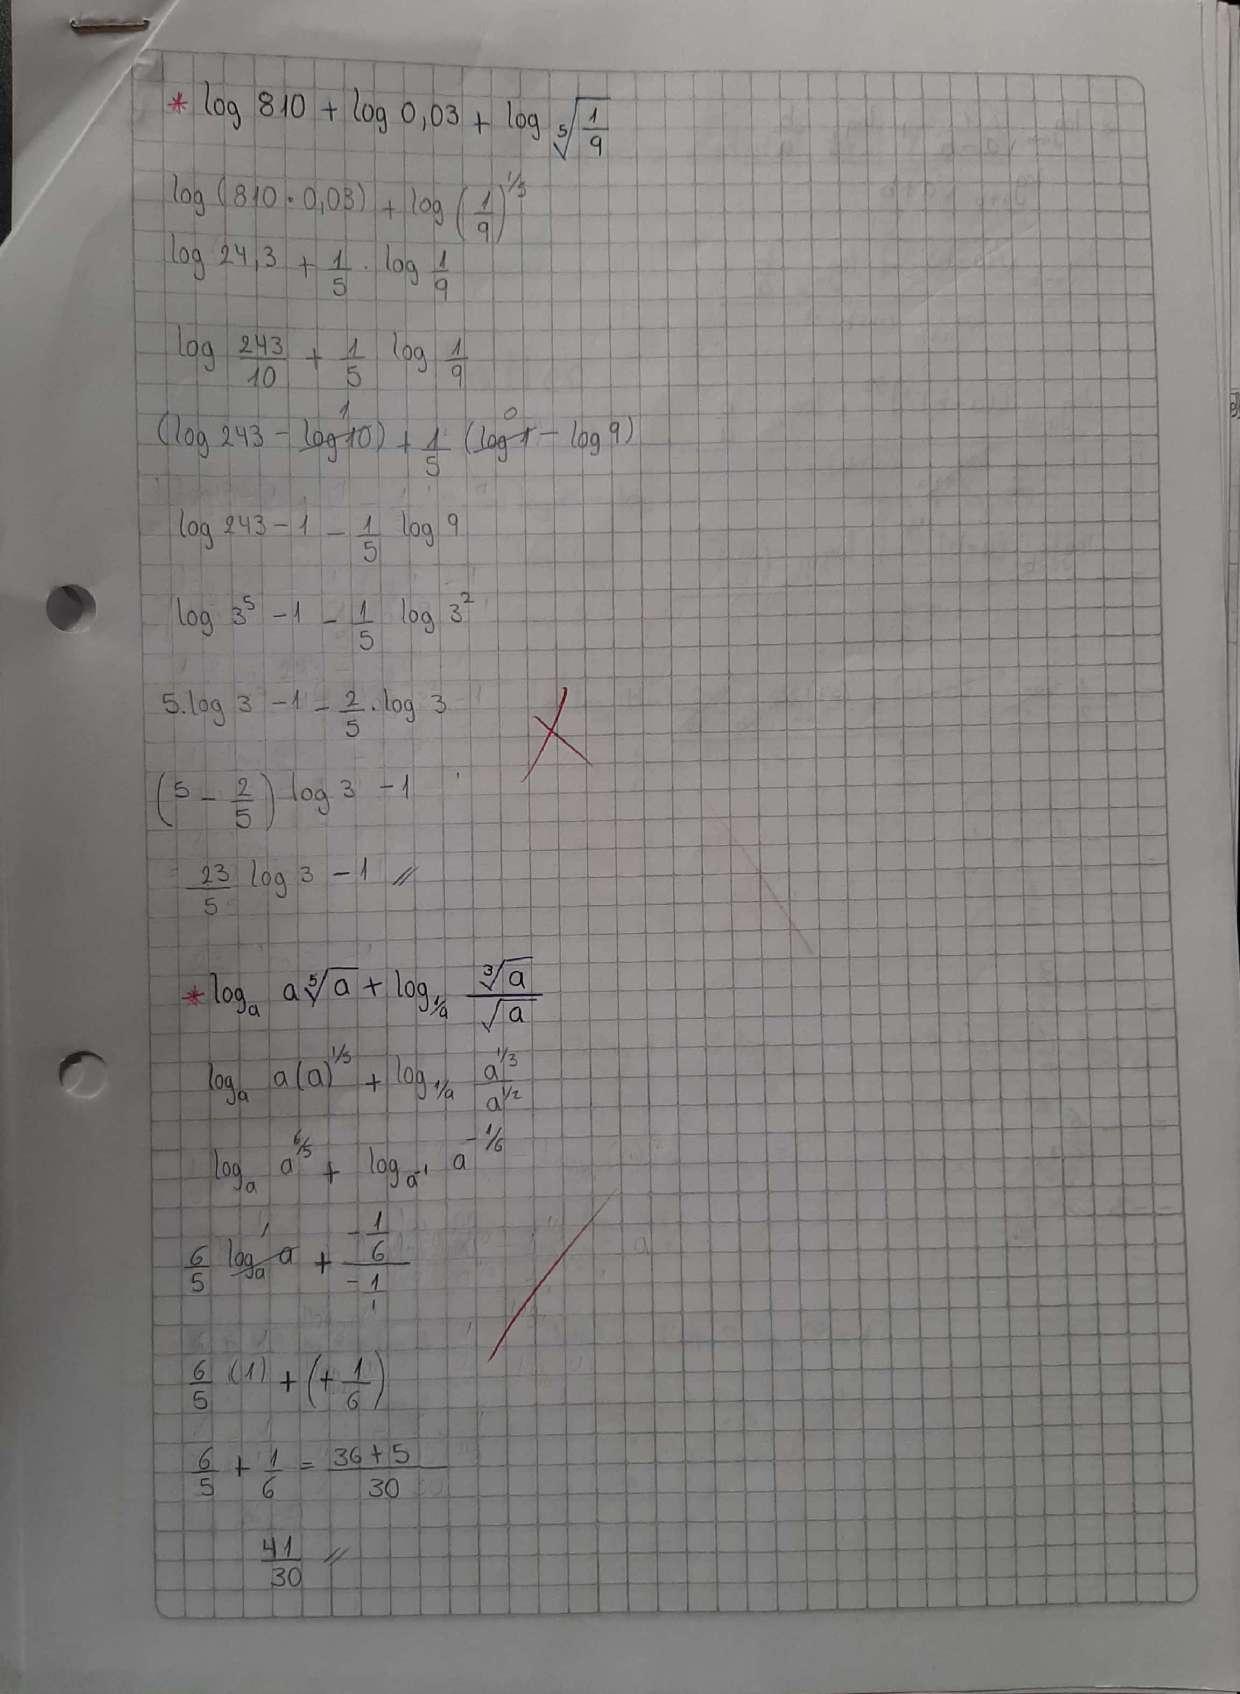 * log 810 + log 0,03 + log ⁵√(1/9)
log (810 · 0,03) + log (1/9)^1/5
log 24,3 + 1/5 · log 1/9
log 243/10 + 1/5 log 1/9
(log 243 - log 10) + 1/5 (log 1 - log 9)
log 243 - 1 - 1/5 log 9
log 3⁵ - 1 - 1/5 log 3²
5.log 3 - 1 - 2/5 . log 3
(5 - 2/5) log 3 - 1
23/5 log 3 - 1 //
* logₐ a ⁵√a + log₁/ₐ ³√a/√a
logₐ a(a)^1/5 + log₁/ₐ a^1/3/a^1/2
logₐ a^6/5 + logₐ-¹ a^-1/6
6/5 logₐ a + (-1/6)/(-1/1)
6/5 (1) + (+1/6)
6/5 + 1/6 = (36 + 5)/30
41/30 //